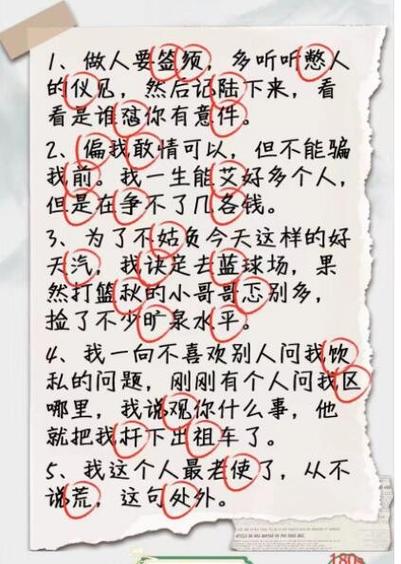 1、做人要签须，多听听憋人
的仪见，然后记陆下来，看
看是谁怼你有意件。
2、偏我敢情可以，但不能骗
我前。我一生能艾好多个人，
但是在争不了几各钱。
3、为了不姑负今天这样的好
天汽，我诀定去蓝球场，果
然打篮秋的小哥哥忑别多，
捡了不少旷泉水平。
4、我一向不喜欢别人问我饮
私的问题，刚刚有个人问我区
哪里，我说观你什么事，他
就把我扞下出祖车了。
5、我这个人最老使了，从不
说荒，这句处外。
180s